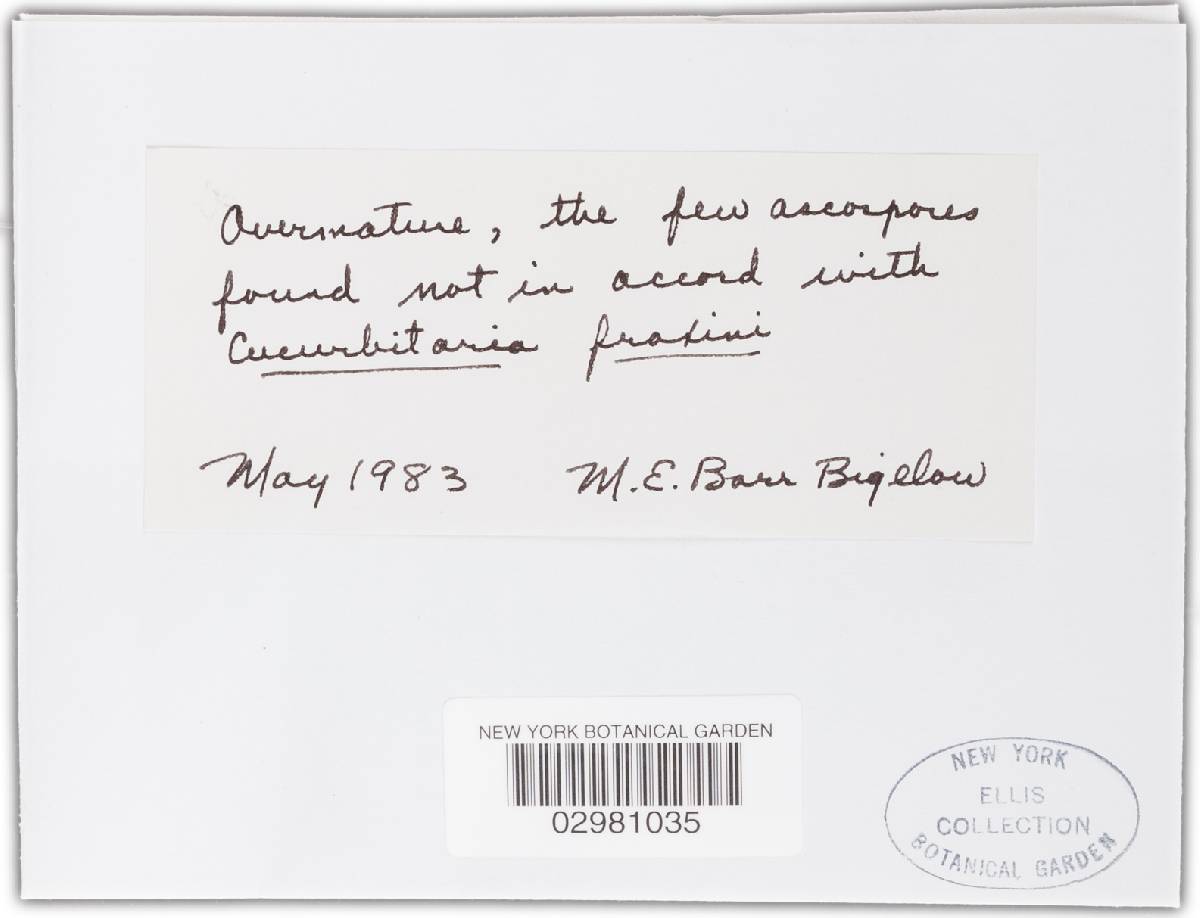 Overmature, the few ascospores
found not in accord with
Cucurbitaria fraxini
May 1983 M.E. Barr Bigelow
NEW YORK BOTANICAL GARDEN
02981035
NEW YORK
ELLIS
COLLECTION
BOTANICAL GARDEN